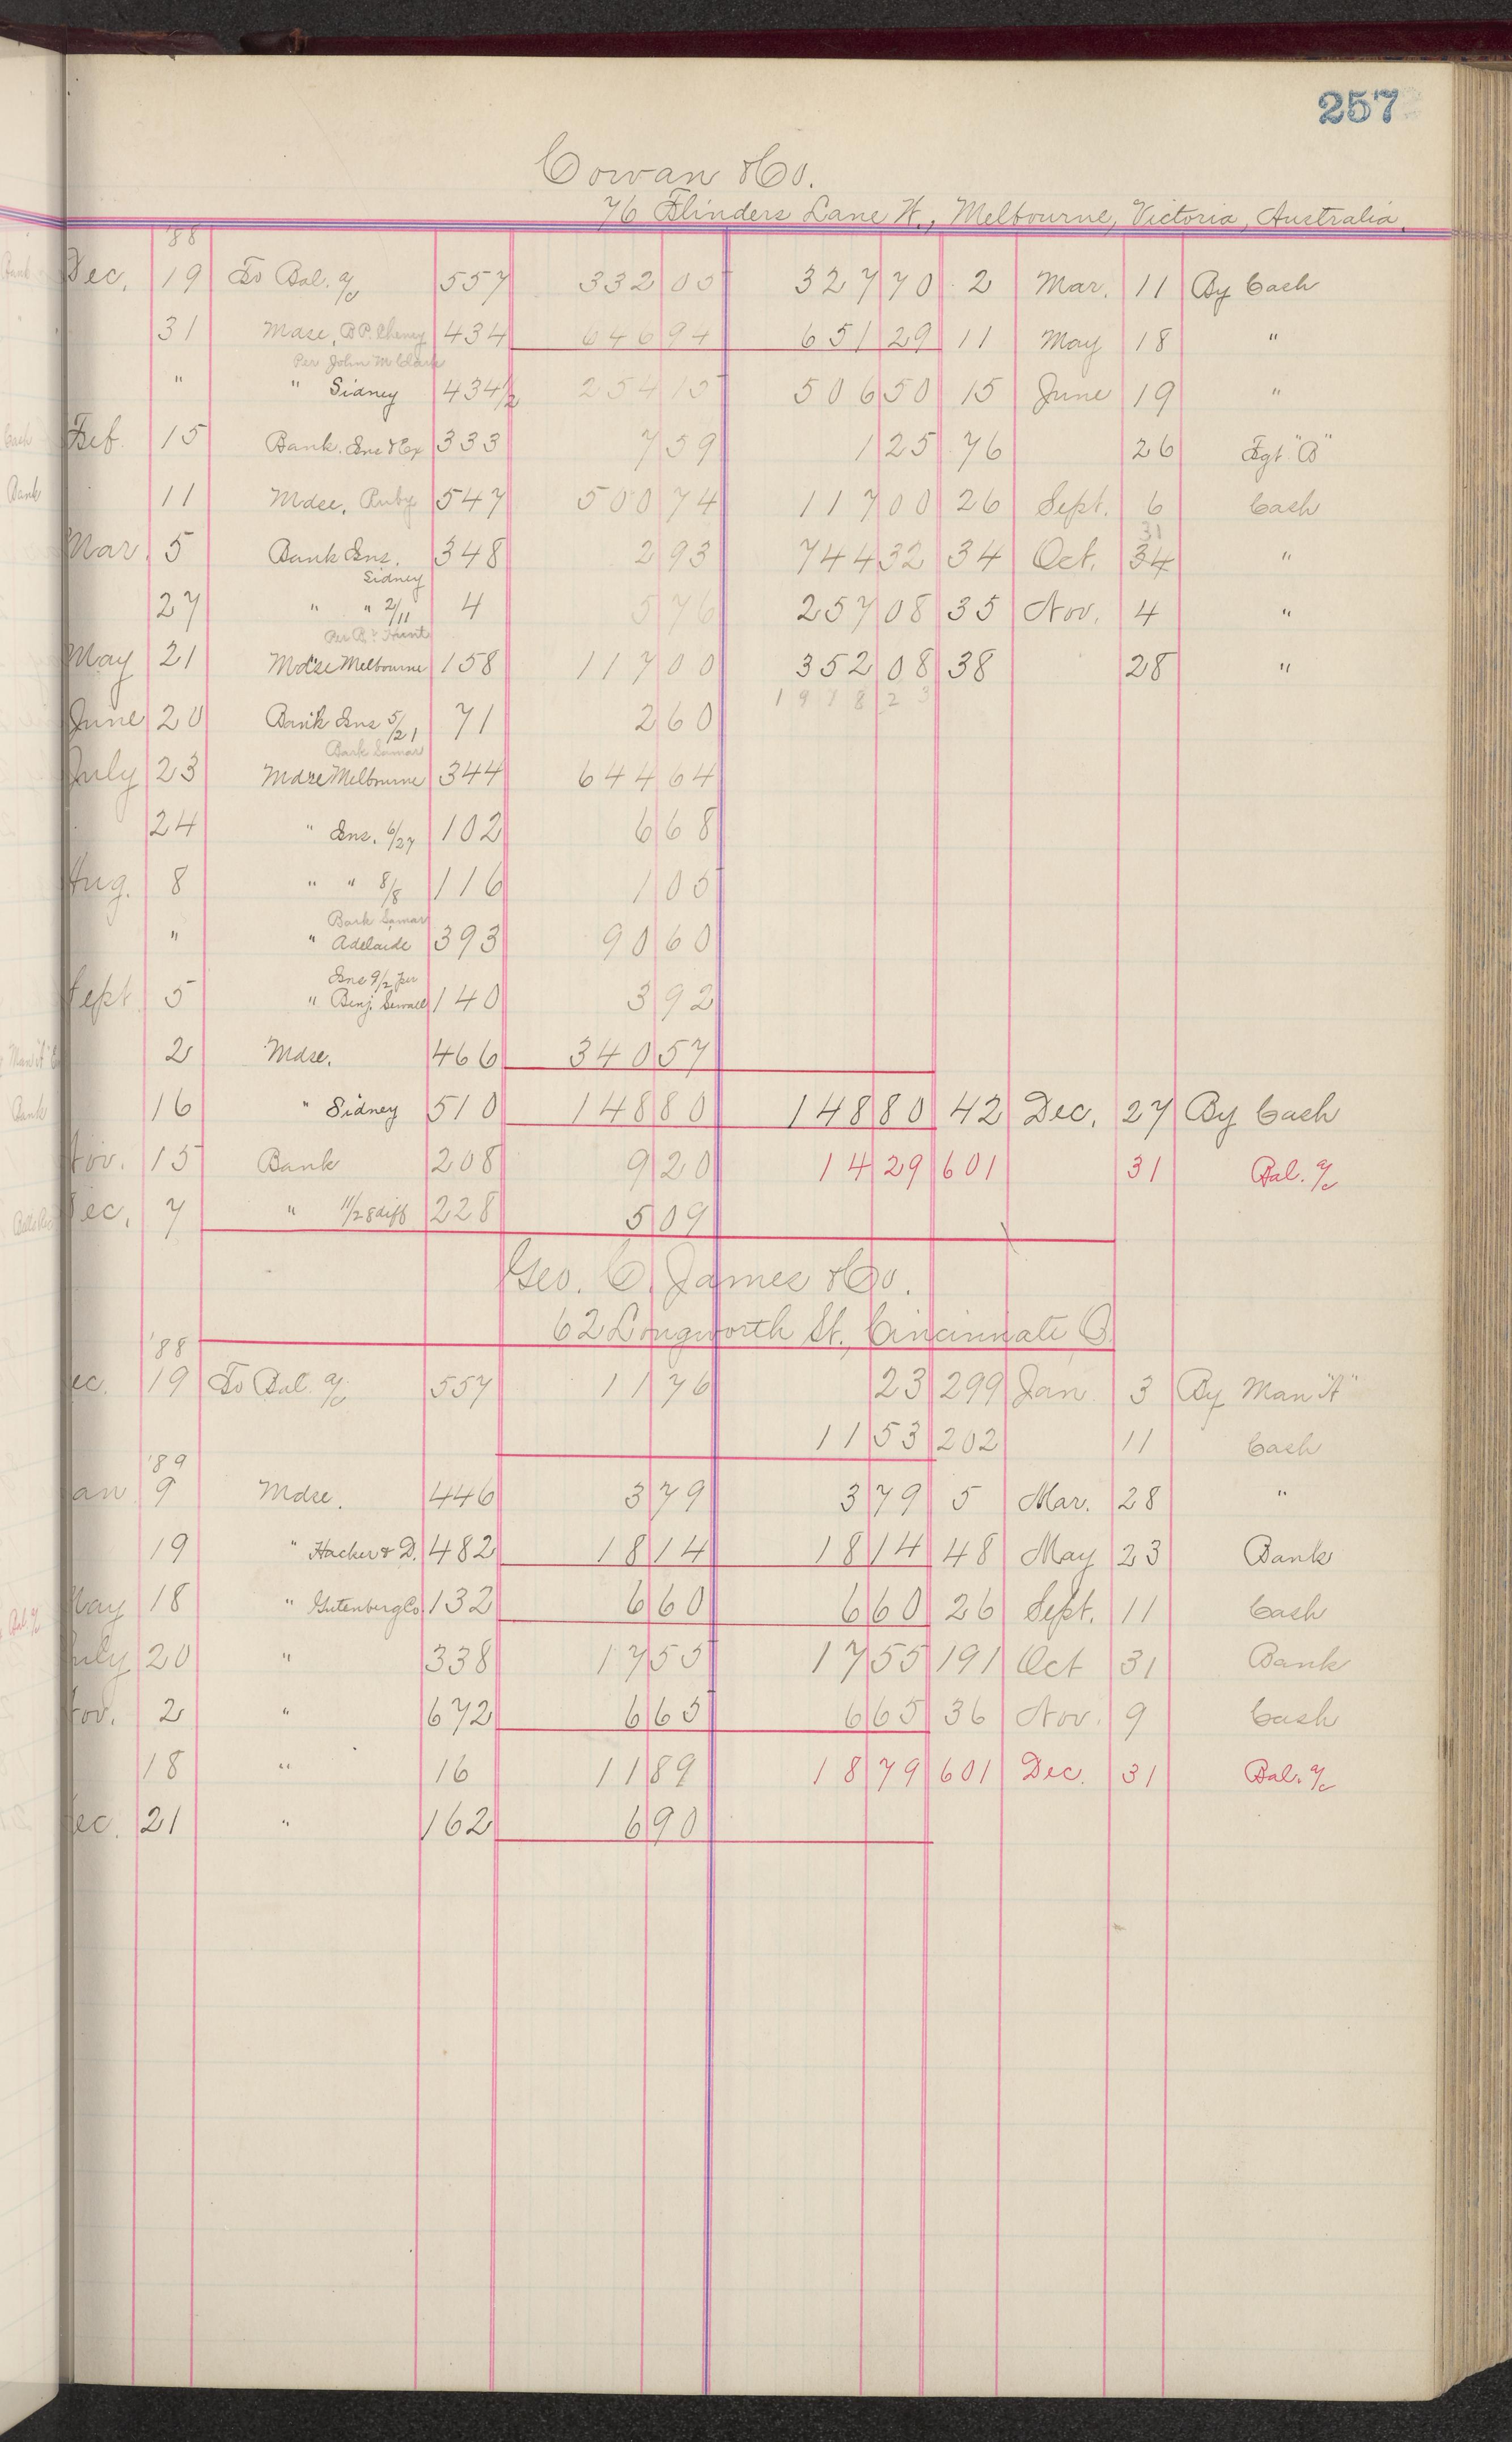 257
Cowan & Co.
76 Flinders Lane W., Melbourne, Victoria, Australia.
'88
Dec. 19 To Bal. a/c 557 332 05 327 70 2 Mar. 11 By Cash
31 Mdse, B.P. Cheney 434 646 94 651 29 11 May 18 "
Per John M Clark
" " Sidney 434 1/2 254 15 506 50 15 June 19 "
Feb. 15 Bank. Ins & Ex 333 7 59 1 25 76 26 Fgt. "B"
11 Mdse, Ruby 547 500 74 117 00 26 Sept. 6 Cash
31
Mar. 5 Bank Ins. 348 2 93 744 32 34 Oct. 34 "
Sidney
27 " " 2/11 4 5 76 257 08 35 Nov. 4 "
Per Bk Hunt
May 21 Mdse Melbourne 158 117 00 352 08 38 28 "
June 20 Bank Ins 5/21 71 2 60
Bark Samar
July 23 Mdse Melbourne 344 644 64
24 " Ins. 6/27 102 6 68
Aug. 8 " " 8/8 116 1 05
Bark Samar
" " Adelaide 393 90 60
Ins 9/2 per
Sept 5 " Benj. Sewall 140 3 92
2 Mdse. 466 340 57
16 " Sidney 510 148 80 148 80 42 Dec. 27 By Cash
Nov. 15 Bank 208 9 20 14 29 601 31 Bal. a/c
Dec. 7 " 11/28 diff 228 5 09
Geo. C. James & Co.
62 Longworth St., Cincinnati O.
'88
ec. 19 To Bal. a/c 557 11 76 23 299 Jan 3 By Man "A"
11 53 202 11 Cash
'89
an 9 Mdse. 446 3 79 3 79 5 Mar. 28 "
19 " Hacker & D. 482 18 14 18 14 48 May 23 Bank
May 18 " Gutenberg Co 132 6 60 6 60 26 Sept. 11 Cash
July 20 " 338 17 55 17 55 191 Oct 31 Bank
Nov. 2 " 672 6 65 6 65 36 Nov. 9 Cash
18 " 16 11 89 18 79 601 Dec. 31 Bal. a/c
ec. 21 " 162 6 90